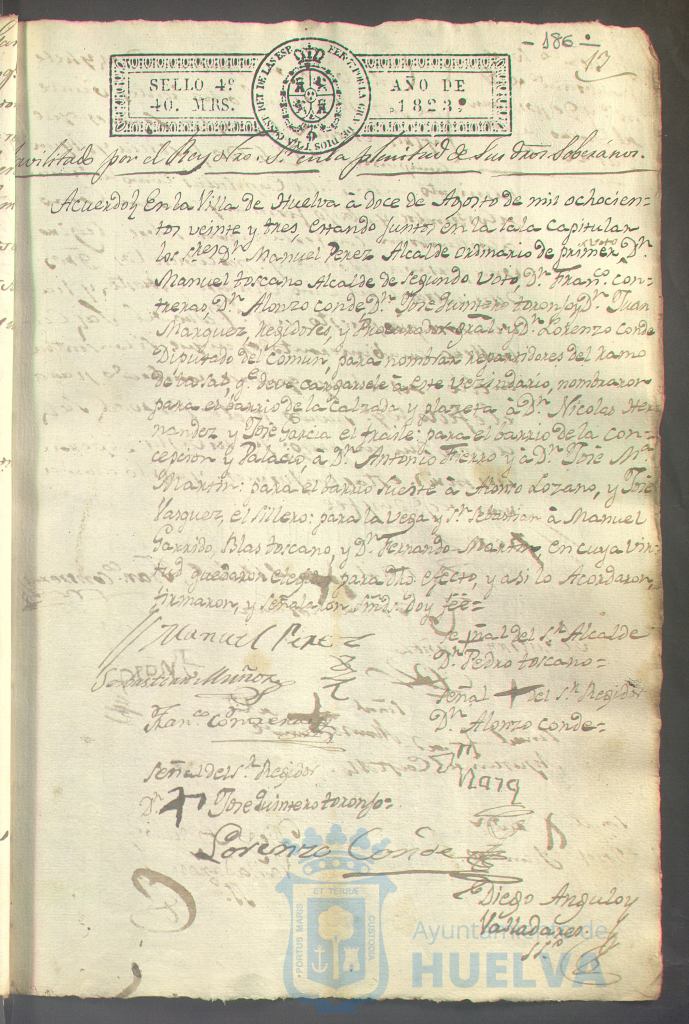 - 186 -
13
SELLO 4º
40. MRS.
FERN. 7. POR LA G. DE DIOS Y LA CONST. REY DE LAS ESP.
AÑO DE
1823.
avilitado por el Rey ntro. Sr. en la plenitud de sus dros Soberanos.
Acuerdo En la Villa de Huelva à doce de Agosto de mil ochocien-
tos veinte y tres, estando juntos en la Sala Capitular
los Sres. Dn. Manuel Perez Alcalde ordinario de primer voto, Dn.
Manuel toscano Alcalde de Segundo Voto, Dn. Franco. con-
treras, Dn. Alonzo conde, Dn. Jose Quintero toronjo y Dn. Juan
Marquez, Regidores, y Procurador gral y Dn. Lorenzo conde
Diputado del Comun, para nombrar repartidores del ramo
de la sal qe. deve cargarsele à este vezindario, nombraron
para el barrio de la Calzada y plazeta à Dn. Nicolas Her-
nandez y Jose Garcia el fraile: para el barrio de la Con-
cepcion y Palacio, à Dn. Antonio Fierro y à Dn. Jose Ma.
Martin: para el barrio fuente à Alonso Lozano, y Jose
Vazquez, el Sillero: para la Vega y Sn. Sebastian à Manuel
Garrido, Blas toscano, y Dn. Fernando Martin, en cuya vir-
tud quedaron electos para dho efecto, y asi lo Acordaron,
firmaron, y señalaron Smds. doy feè=
Manuel Perez
Señal del Sr. Alcalde
Dn. Pedro toscano=
Sebastian Muñoz
Señal + del Sr. Regidor
Franco. Contreras
Dn. Alonzo conde=
Señal del Sr. Regidor
Dn. + Jose Quintero toronjo=
Marq
Lorenzo Conde
Diego Angulo y
Valladares
PORTUS MARIS ET TERRAE CUSTODIA
Ayuntamiento de
HUELVA